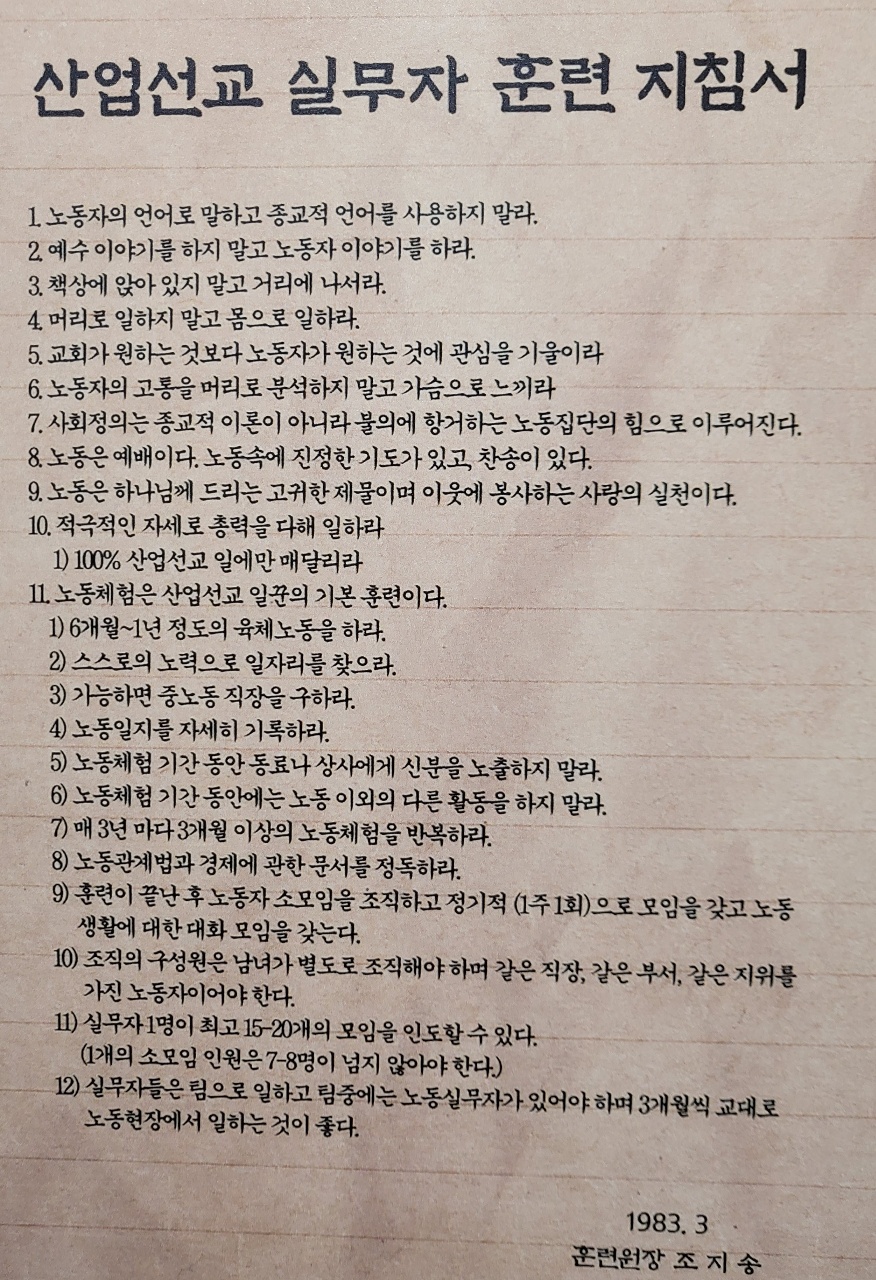 산업선교 실무자 훈련 지침서
1. 노동자의 언어로 말하고 종교적 언어를 사용하지 말라.
2. 예수 이야기를 하지 말고 노동자 이야기를 하라.
3. 책상에 앉아 있지 말고 거리에 나서라.
4. 머리로 일하지 말고 몸으로 일하라.
5. 교회가 원하는 것보다 노동자가 원하는 것에 관심을 기울이라
6. 노동자의 고통을 머리로 분석하지 말고 가슴으로 느끼라
7. 사회정의는 종교적 이론이 아니라 불의에 항거하는 노동집단의 힘으로 이루어진다.
8. 노동은 예배이다. 노동속에 진정한 기도가 있고, 찬송이 있다.
9. 노동은 하나님께 드리는 고귀한 제물이며 이웃에 봉사하는 사랑의 실천이다.
10. 적극적인 자세로 총력을 다해 일하라
1) 100% 산업선교 일에만 매달리라
11. 노동체험은 산업선교 일꾼의 기본 훈련이다.
1) 6개월~1년 정도의 육체노동을 하라.
2) 스스로의 노력으로 일자리를 찾으라.
3) 가능하면 중노동 직장을 구하라.
4) 노동일지를 자세히 기록하라.
5) 노동체험 기간 동안 동료나 상사에게 신분을 노출하지 말라.
6) 노동체험 기간 동안에는 노동 이외의 다른 활동을 하지 말라.
7) 매 3년 마다 3개월 이상의 노동체험을 반복하라.
8) 노동관계법과 경제에 관한 문서를 정독하라.
9) 훈련이 끝난 후 노동자 소모임을 조직하고 정기적 (1주 1회)으로 모임을 갖고 노동
생활에 대한 대화 모임을 갖는다.
10) 조직의 구성원은 남녀가 별도로 조직해야 하며 같은 직장, 같은 부서, 같은 지위를
가진 노동자이어야 한다.
11) 실무자 1명이 최고 15-20개의 모임을 인도할 수 있다.
(1개의 소모임 인원은 7-8명이 넘지 않아야 한다.)
12) 실무자들은 팀으로 일하고 팀중에는 노동실무자가 있어야 하며 3개월씩 교대로
노동현장에서 일하는 것이 좋다.
1983. 3
훈련원장 조 지 송